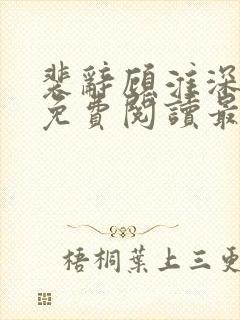 裴辭顧淮深
免費閱讀最
梧桐葉上三更